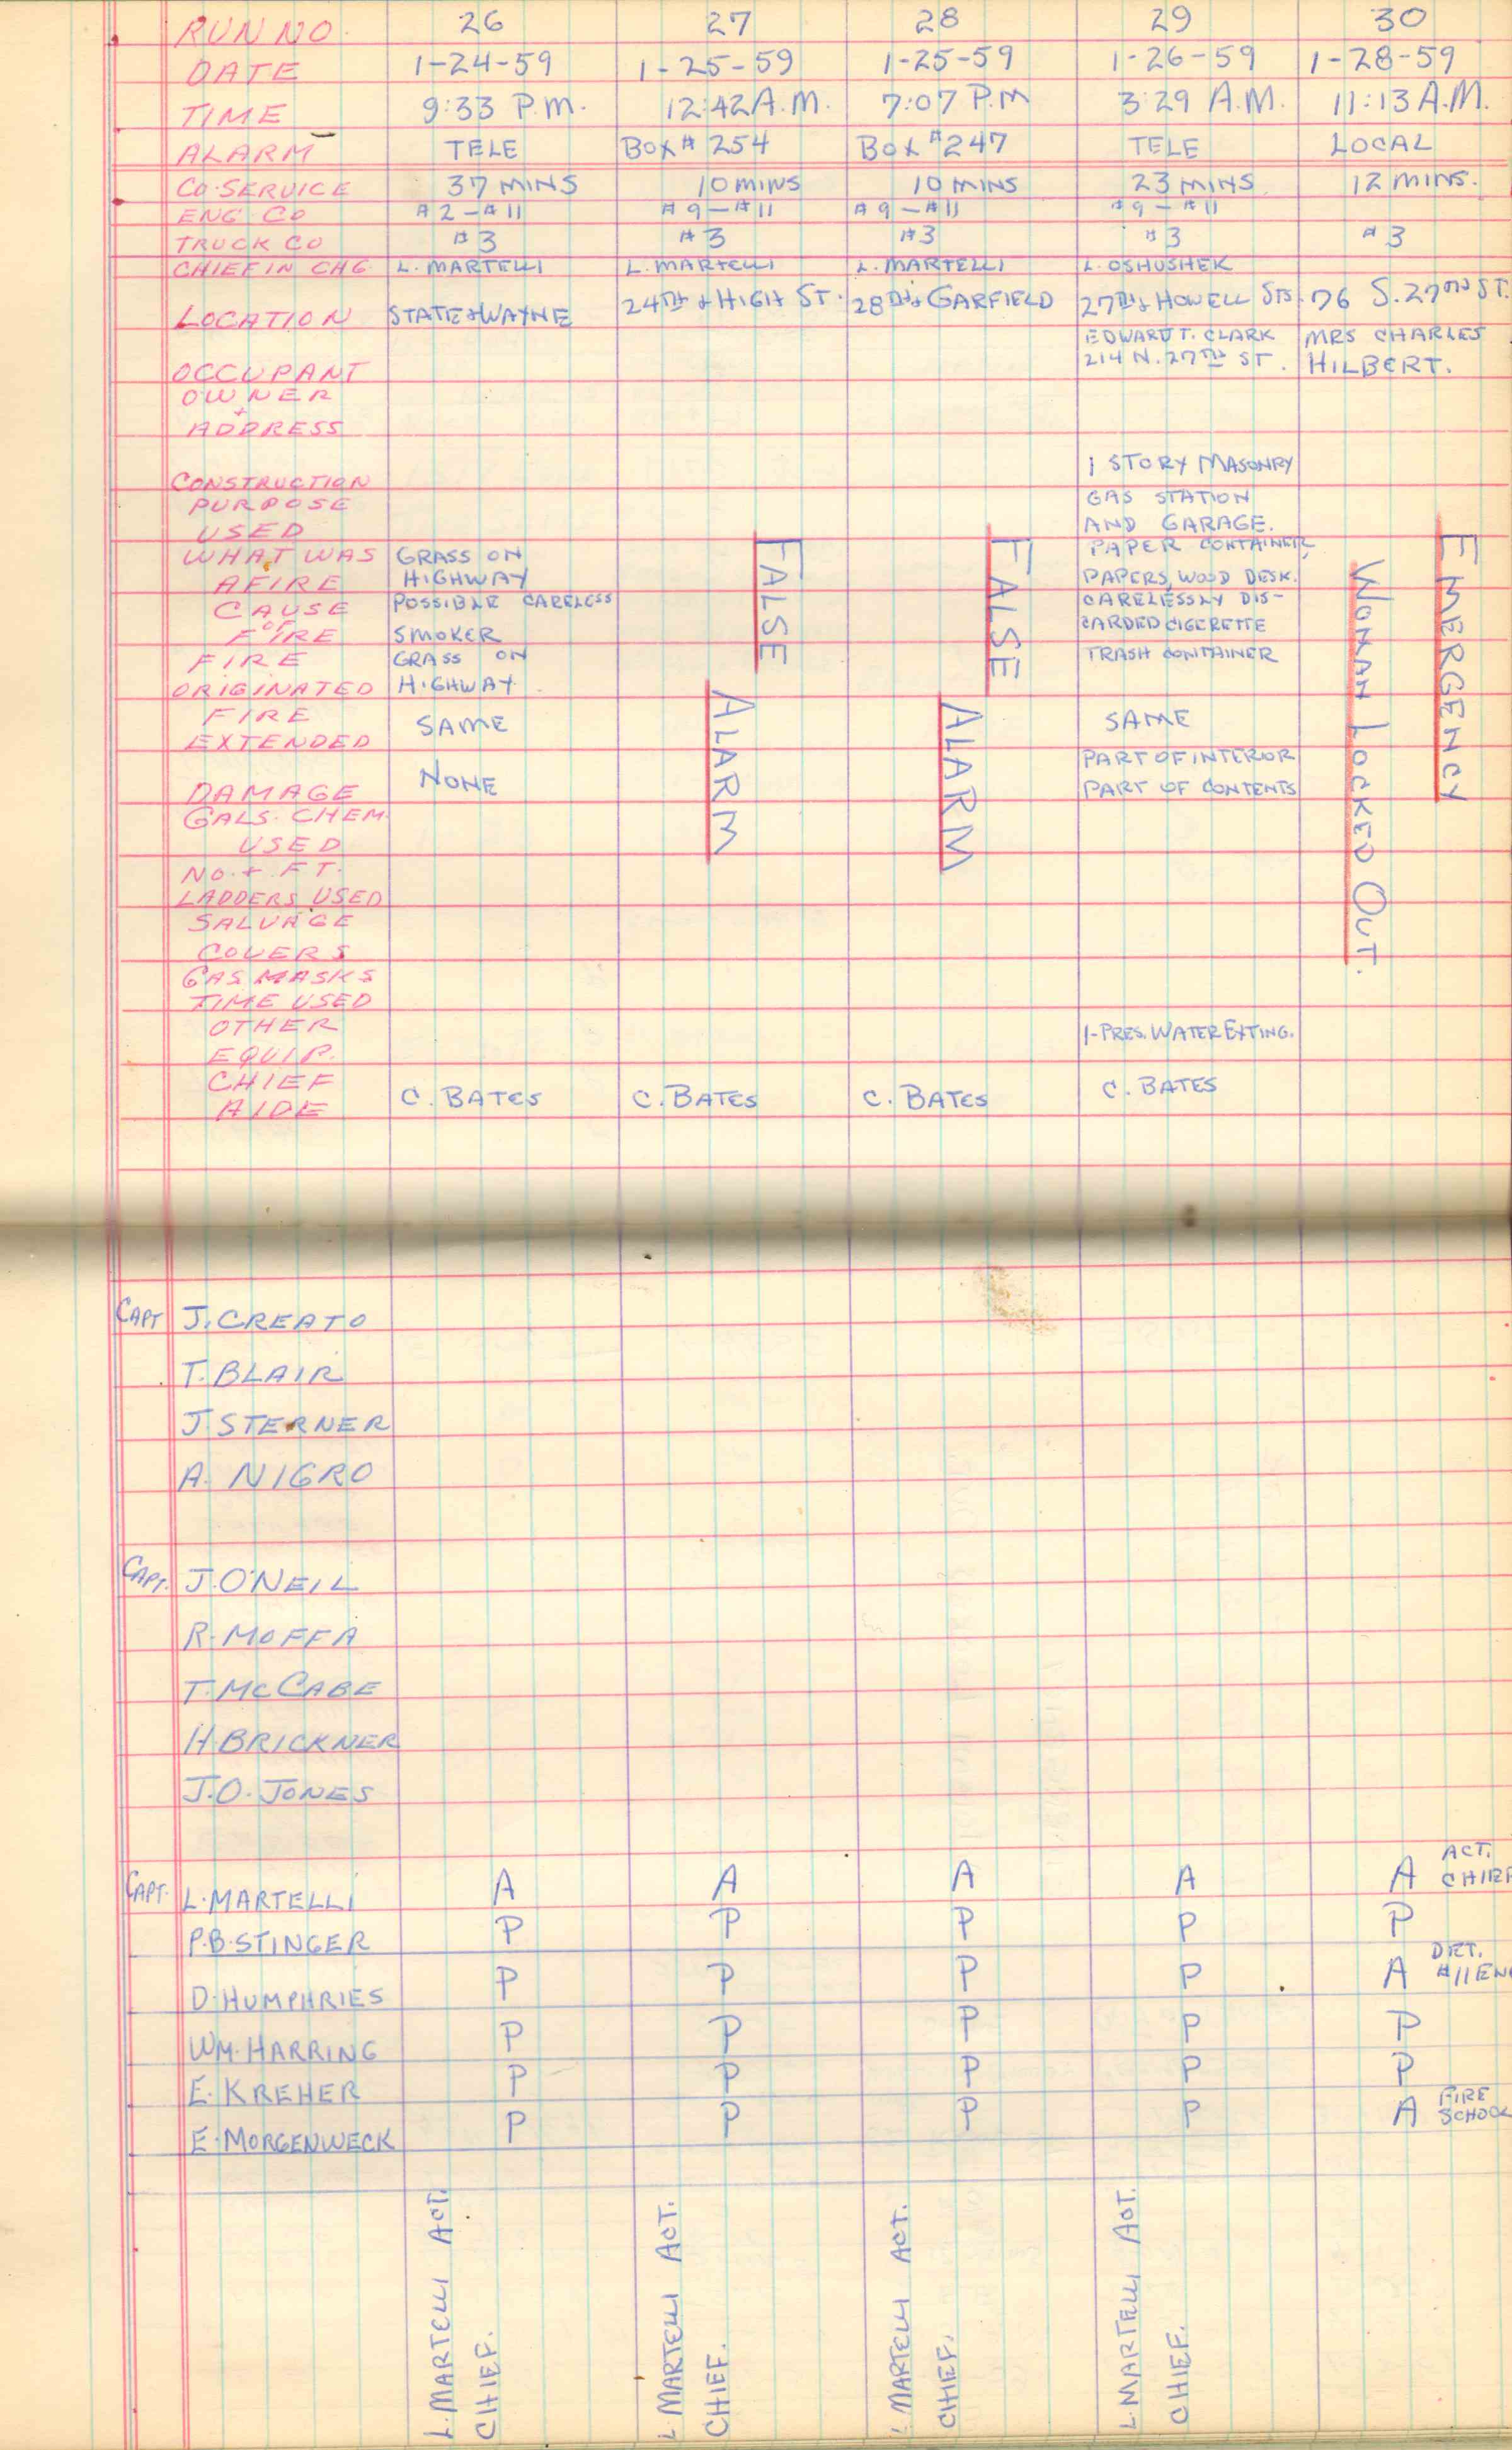 RUN NO. 26 27 28 29 30
DATE 1-24-59 1-25-59 1-25-59 1-26-59 1-28-59
TIME 9:33 P.M. 12:42 A.M. 7:07 P.M 3:29 A.M. 11:13 A.M.
ALARM TELE BOX # 254 BOX #247 TELE LOCAL
CO. SERVICE 37 MINS 10 MINS 10 MINS 23 MINS. 12 MINS.
ENG CO #2-#11 #9-#11 #9-#11 #9-#11
TRUCK CO #3 #3 #3 #3 #3
CHIEF IN CHG L. MARTELLI L. MARTELLI L. MARTELLI L. OSHUSHEK
LOCATION STATE & WAYNE 24TH & HIGH ST. 28TH & GARFIELD 27TH & HOWELL STS. 76 S. 27TH ST.
OCCUPANT
OWNER
+
ADDRESS
EDWARD T. CLARK
214 N. 27TH ST.
MRS CHARLES
HILBERT.
CONSTRUCTION
PURPOSE
USED
1 STORY MASONRY
GAS STATION
AND GARAGE.
WHAT WAS
AFIRE
GRASS ON
HIGHWAY
PAPER CONTAINER,
PAPERS, WOOD DESK.
CAUSE
OF
FIRE
POSSIBLE CARELESS
SMOKER
CARELESSLY DIS-
CARDED CIGERETTE
FIRE
ORIGINATED
GRASS ON
HIGHWAY
TRASH CONTAINER
FIRE
EXTENDED
SAME
SAME
DAMAGE
NONE
PART OF INTEROR
PART OF CONTENTS
FALSE
ALARM
FALSE
ALARM
EMERGENCY
WOMAN LOCKED OUT.
GALS. CHEM.
USED
NO. + FT.
LADDERS USED
SALVAGE
COVERS
GAS MASKS
TIME USED
OTHER
EQUIP.
1-PRES. WATER EXTING.
CHIEF
AIDE
C. BATES C. BATES C. BATES C. BATES
CAPT J. CREATO
T. BLAIR
J. STERNER
A. NIGRO
CAPT. J. O'NEIL
R. MOFFA
T. McCABE
H. BRICKNER
J.O. JONES
CAPT. L. MARTELLI A A A A A ACT. CHIEF
P.B. STINGER P P P P P
D. HUMPHRIES P P P P A DET. #11 ENG
WM. HARRING P P P P P
E. KREHER P P P P P
E. MORGENWECK P P P P A FIRE SCHOOL
L. MARTELLI ACT.
CHIEF.
L MARTELLI ACT.
CHIEF.
L MARTELLI ACT.
CHIEF.
L. MARTELLI ACT.
CHIEF.